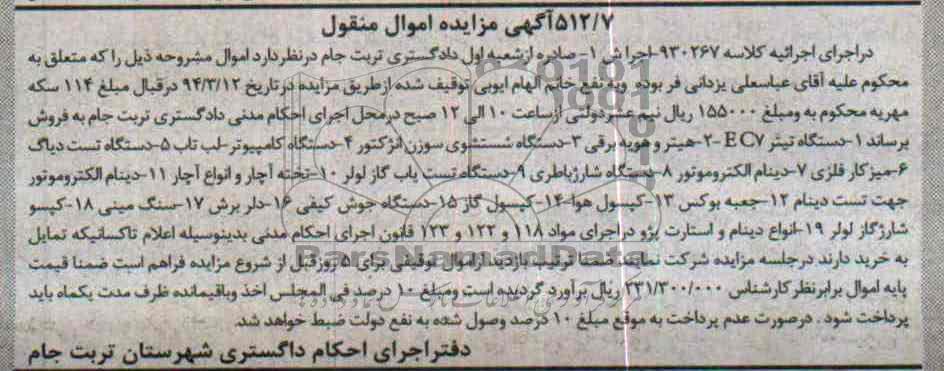 ۵۱۲/۷آگهی مزایده اموال منقول
دراجرای اجرائیه کلاسه ۹۳۰۲۶۷-اجرا ش ۱- صادره ازشعبه اول دادگستری تربت جام درنظردارد اموال مشروحه ذیل را که متعلق به
محکوم علیه آقای عباسعلی یزدانی فر بوده وبه نفع خانم الهام ایوبی توقیف شده ازطریق مزایده درتاریخ ۹۴/۳/۱۲ درقبال مبلغ ۱۱۴ سکه
مهریه محکوم به ومبلغ ۱۵۵۰۰۰ ریال نیم عشردولتی ازساعت ۱۰ الی ۱۲ صبح درمحل اجرای احکام مدنی دادگستری تربت جام به فروش
برساند ۱-دستگاه تیتر EC۷ -۲-هیتر و هویه برقی ۳-دستگاه شستشوی سوزن انژکتور ۴-دستگاه کامپیوتر-لب تاب ۵-دستگاه تست دیاگ
۶-میزکار فلزی ۷-دینام الکتروموتور ۸-دستگاه شارژباطری ۹-دستگاه تست یاب گاز لولر ۱۰-تخته آچار و انواع آچار ۱۱-دینام الکتروموتور
جهت تست دینام ۱۲-جعبه بوکس ۱۳-کپسول هوا-۱۴-کپسول گاز ۱۵-دستگاه جوش کیفی ۱۶-دلر برش ۱۷-سنگ مینی ۱۸-کپسو
شارژگاز لولر ۱۹-انواع دینام و استارت پژو دراجرای مواد ۱۱۸ و ۱۲۲ و ۱۲۳ قانون اجرای احکام مدنی بدینوسیله اعلام تاکسانیکه تمایل
به خرید دارند درجلسه مزایده شرکت نمایند ضمنا ترتیب بازدید ازاموال توقیفی برای ۵ روزقبل از شروع مزایده فراهم است ضمنا قیمت
پایه اموال برابرنظرکارشناس ۲۳۱/۳۰۰/۰۰۰ ریال برآورد گردیده است ومبلغ ۱۰ درصد فی المجلس اخذ وباقیمانده ظرف مدت یکماه باید
پرداخت شود . درصورت عدم پرداخت به موقع مبلغ ۱۰ درصد وصول شده به نفع دولت ضبط خواهد شد.
دفتراجرای احکام داگستری شهرستان تربت جام
ParsNamadData